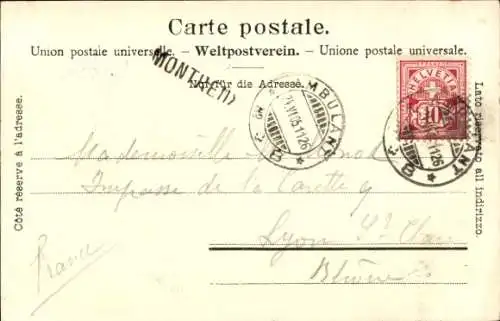 Carte postale.
Union postale universelle. – Weltpostverein. – Unione postale universale.
Nur für die Adresse.
MONTHEY
AMBULANT
24.VI.05.11
HELVETIA
10
AMBULANT
Côté réservé à l'adresse.
Lato riservato all indirizzo.
Mademoiselle
Impasse de la
Lyon
Rhône
France